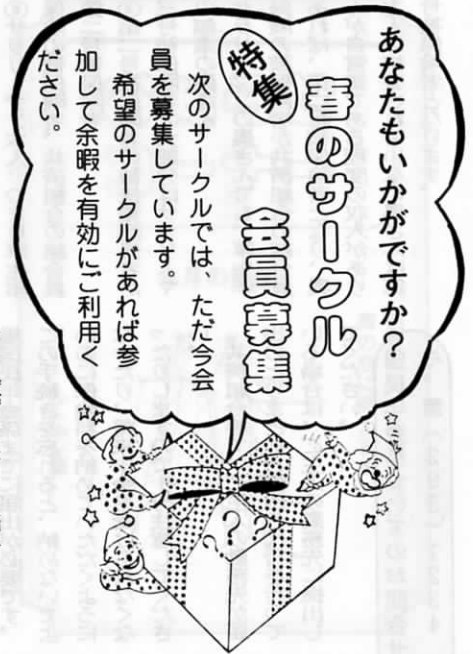 あなたもいかがですか?
特集
春のサークル
会員募集
次のサークルでは、ただ今会
員を募集しています。
希望のサークルがあれば参
加して余暇を有効にご利用く
ださい。
???